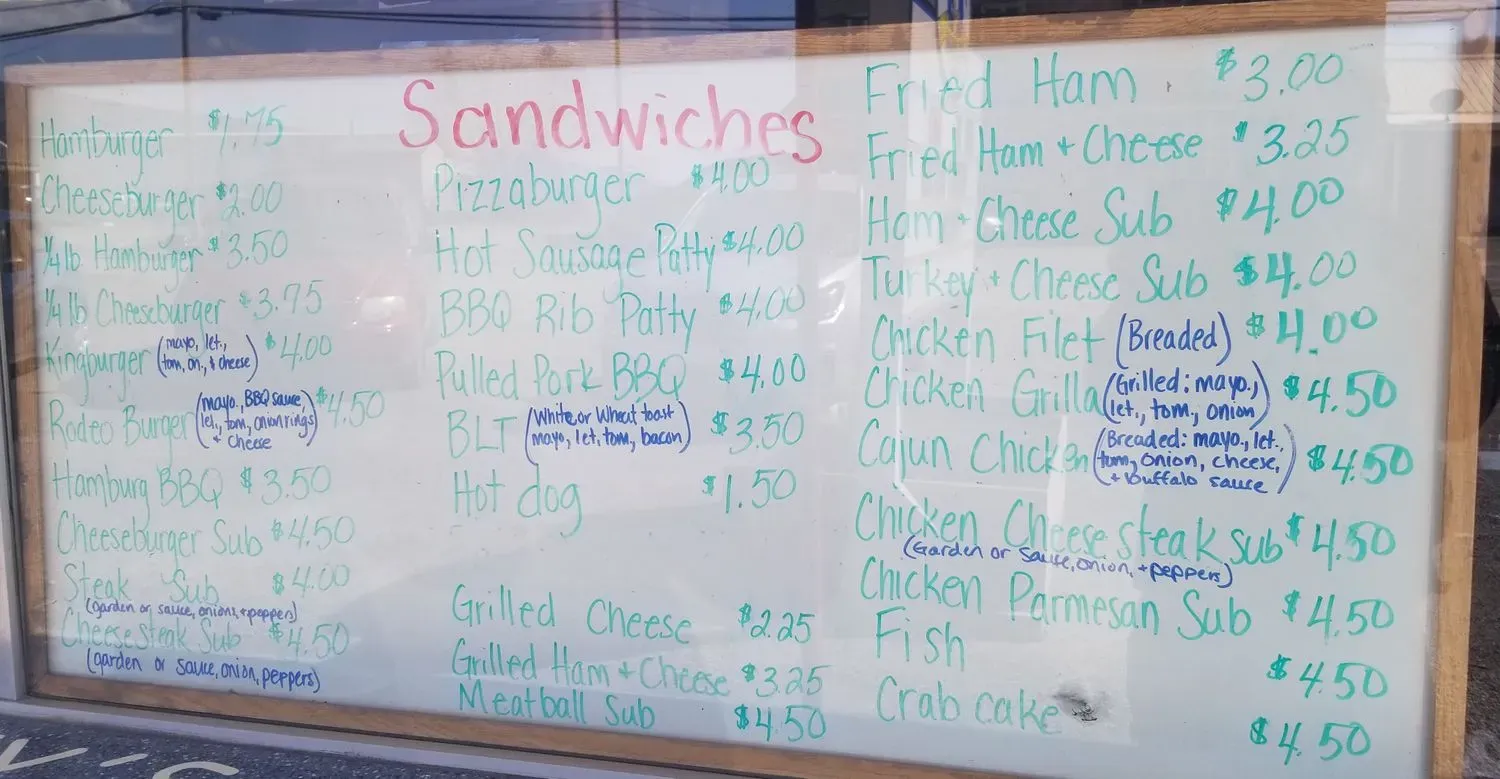 Sandwiches
Hamburger $1.75
Cheeseburger $2.00
1/4 lb Hamburger $3.50
1/4 lb Cheeseburger $3.75
Kingburger (mayo, let., $4.00
tom, on., & cheese)
Rodeo Burger (mayo., BBQ sauce, $4.50
let., tom, onion rings
+ cheese)
Hamburg BBQ $3.50
Cheeseburger Sub $4.50
Steak Sub $4.00
(garden or sauce, onions, + peppers)
Cheesesteak Sub $4.50
(garden or sauce, onion, peppers)
Pizzaburger $4.00
Hot Sausage Patty $4.00
BBQ Rib Patty $4.00
Pulled Pork BBQ $4.00
BLT (White or Wheat toast $3.50
mayo, let, tom, bacon)
Hot dog $1.50
Grilled Cheese $2.25
Grilled Ham + Cheese $3.25
Meatball Sub $4.50
Fried Ham $3.00
Fried Ham + Cheese $3.25
Ham + Cheese Sub $4.00
Turkey + Cheese Sub $4.00
Chicken Filet (Breaded) $4.00
Chicken Grilla (Grilled: mayo., $4.50
let., tom, onion)
Cajun Chicken (Breaded: mayo., let., $4.50
tom, onion, cheese,
+ buffalo sauce)
Chicken Cheesesteak sub $4.50
(Garden or sauce, onion, + peppers)
Chicken Parmesan Sub $4.50
Fish $4.50
Crab cake $4.50